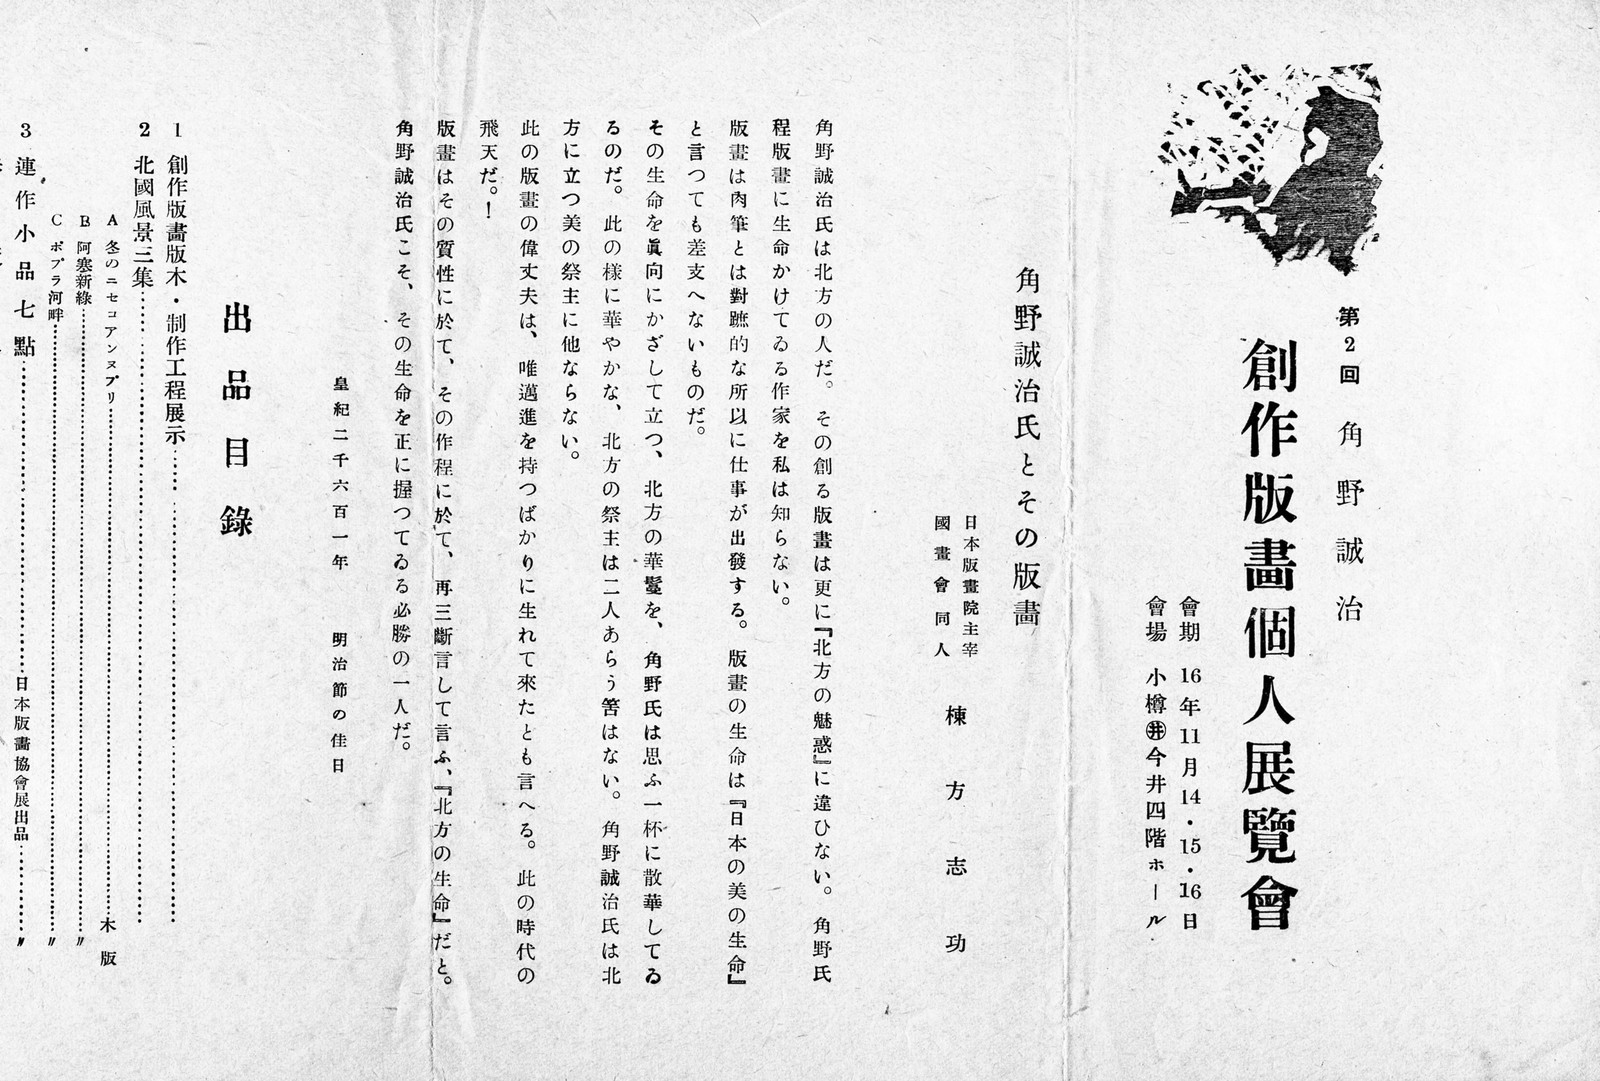 第2回 角野誠治
創作版畫個人展覽會
會期 16年11月14・15・16日
會場 小樽㊌今井四階ホール
角野誠治氏とその版畫
日本版畫院主宰
國畫會同人
棟方志功
角野誠治氏は北方の人だ。その創る版畫は更に『北方の魅惑』に違ひない。角野氏
程版畫に生命かけてゐる作家を私は知らない。
版畫は肉筆とは對蹠的な所以に仕事が出發する。版畫の生命は『日本の美の生命』
と言つても差支へないものだ。
その生命を眞向にかざして立つ、北方の華鬘を、角野氏は思ふ一杯に散華してゐ
るのだ。此の様に華やかな、北方の祭主は二人あらう筈はない。角野誠治氏は北
方に立つ美の祭主に他ならない。
此の版畫の偉丈夫は、唯邁進を持つばかりに生れて來たとも言へる。此の時代の
飛天だ。!
版畫はその質性に於て、その作程に於て、再三斷言して言ふ、『北方の生命』だと。
角野誠治氏こそ、その生命を正に握つてゐる必勝の一人だ。
皇紀二千六百一年 明治節の佳日
出品目錄
1 創作版畫版木・制作工程展示
2 北國風景三集
A 冬のニセコアンヌプリ 木版
B 阿寒新綠 〃
C ポプラ河畔 〃
3 連作小品七點 日本版畫協會展出品 〃